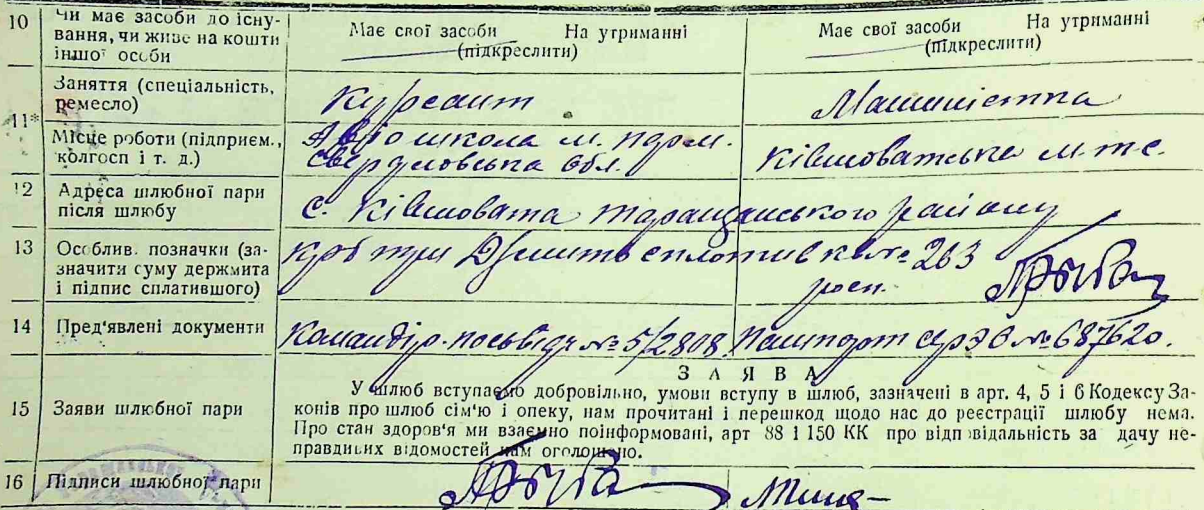 10 Чи має засоби до існу-
вання, чи живе на кошти
іншої особи
Має свої засоби На утриманні
(підкреслити)
Має свої засоби На утриманні
(підкреслити)
11* Заняття (спеціальність,
ремесло)
Курсант
Машиністка
Місце роботи (підприєм.,
колгосп і т. д.)
Автошкола м.
Свердловська обл.
Ківшоватська м.т.с.
12 Адреса шлюбної пари
після шлюбу
с. Ківшовата Таращанського району
13 Особлив. позначки (за-
значити суму держмита
і підпис сплатившого)
Крб три сплотив кв № 263
расп.
14 Пред'явлені документи
Командір. посвідч № 5/2808. Пашпорт № 687620.
15 Заяви шлюбної пари
ЗАЯВА
У шлюб вступаємо добровільно, умови вступу в шлюб, зазначені в арт. 4, 5 і 6 Кодексу За-
конів про шлюб сім'ю і опеку, нам прочитані і перешкод щодо нас до реєстрації шлюбу нема.
Про стан здоров'я ми взаємно поінформовані, арт 88 і 150 КК про відповідальність за дачу не-
правдивих відомостей нам оголошено.
16 Підписи шлюбної пари